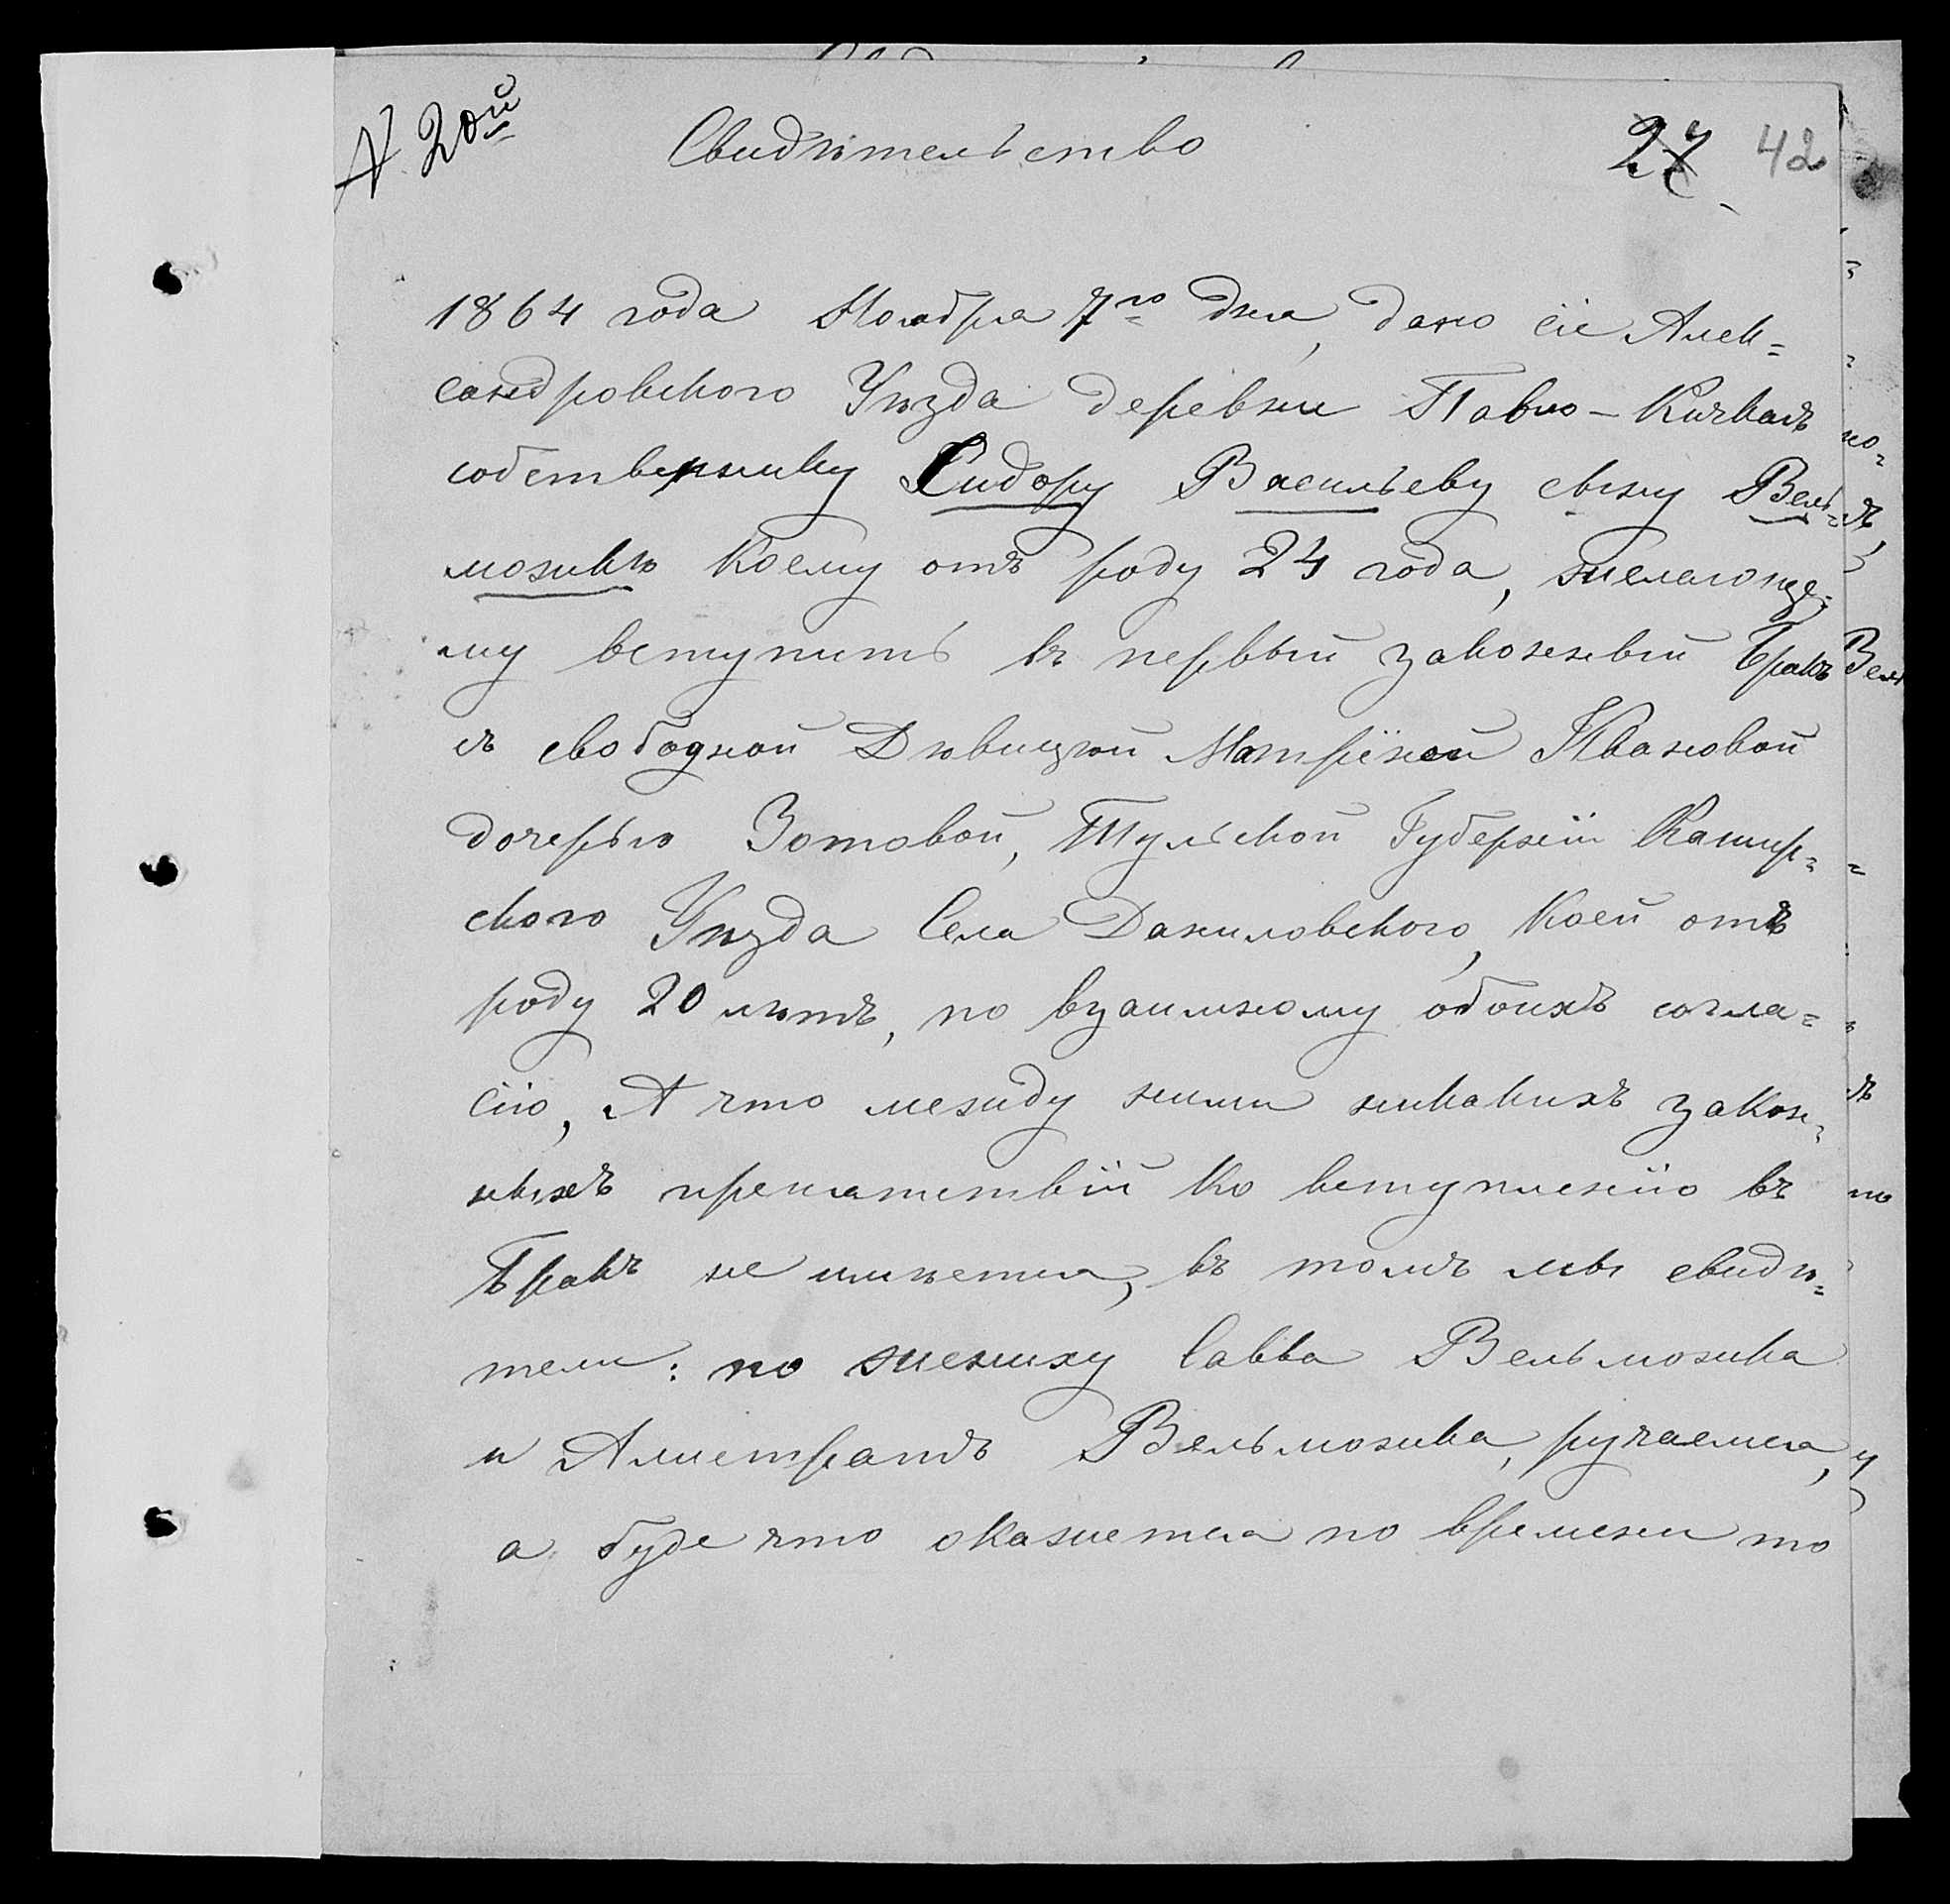 N 20й
Свидѣтельство
27 42
1864 года Ноября 7го дня, дано сіе Алек=
сандровского Уѣзда деревни Павло-Кичкасъ
собственнику Сидору Васильеву сыну Вель=
можкѣ коему отъ роду 24 года, желающе=
му вступить въ первый законный Бракъ
съ свободной Дѣвицой Матрёной Ивановой
дочерью Зотовой, Тульской Губерніи Кашир=
ского Уѣзда Села Даниловского, коей отъ
роду 20 лѣтъ, по взаимному обоихъ согла=
сію, А что между ними никакихъ закон=
ныхъ препятствій ко вступленію въ
Бракъ не имѣется, въ томъ мы свидѣ=
тели: по жениху Савва Вельможка
и Алистратъ Вельможка, ручаемся,
а буде что окажется по времени то